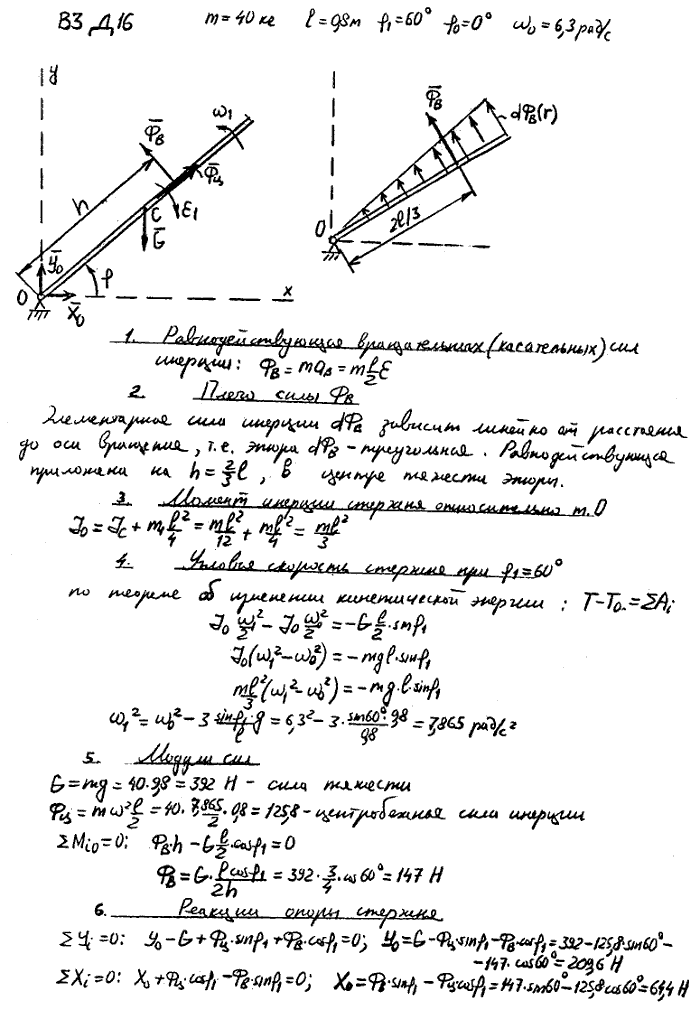 В3 Д16 m = 40 кг l = 0,8 м φ₁ = 60° φ₀ = 0° ω₀ = 6,3 рад/с
y
ω₁
Φ̄в
Φ̄ц
h
C
ε₁
Ḡ
Ȳ₀
φ
O
X̄₀
x
Φ̄в
dΦв(r)
O
2l/3
1. Равнодействующая вращательных (касательных) сил
инерции: Φв = maв = m l/2 ε
2. Плечо силы Φв
Элементарная сила инерции dΦв зависит линейно от расстояния
до оси вращения, т.е. эпюра dΦв – треугольная. Равнодействующая
приложена на h = 2/3 l, в центре тяжести эпюры.
3. Момент инерции стержня относительно т. О
J₀ = Jc + m l²/4 = ml²/12 + ml²/4 = ml²/3
4. Угловая скорость стержня при φ₁ = 60°
по теореме об изменении кинетической энергии: T – T₀ = ΣAᵢ
J₀ ω₁²/2 – J₀ ω₀²/2 = –G l/2 · sinφ₁
J₀(ω₁² – ω₀²) = –mgl·sinφ₁
ml²/3 (ω₁² – ω₀²) = –mg·l·sinφ₁
ω₁² = ω₀² – 3 sinφ₁·g/l = 6,3² – 3· sin60°·9,8/0,8 = 7,865 рад/с²
5. Модули сил
G = mg = 40·9,8 = 392 Н – сила тяжести
Φц = mω² l/2 = 40· 7,865/2 ·0,8 = 125,8 – центробежная сила инерции
ΣMᵢ₀ = 0: Φв·h – G l/2 ·cosφ₁ = 0
Φв = G· l cosφ₁/2h = 392· 3/4 ·cos60° = 147 Н
6. Реакции опоры стержня
ΣYᵢ = 0: Y₀ – G + Φц·sinφ₁ + Φв·cosφ₁ = 0; Y₀ = G – Φц·sinφ₁ – Φв·cosφ₁ = 392 – 125,8·sin60° –
– 147·cos60° = 209,6 Н
ΣXᵢ = 0: X₀ + Φц·cosφ₁ – Φв·sinφ₁ = 0; X₀ = Φв·sinφ₁ – Φц·cosφ₁ = 147·sin60° – 125,8·cos60° = 64,4 Н